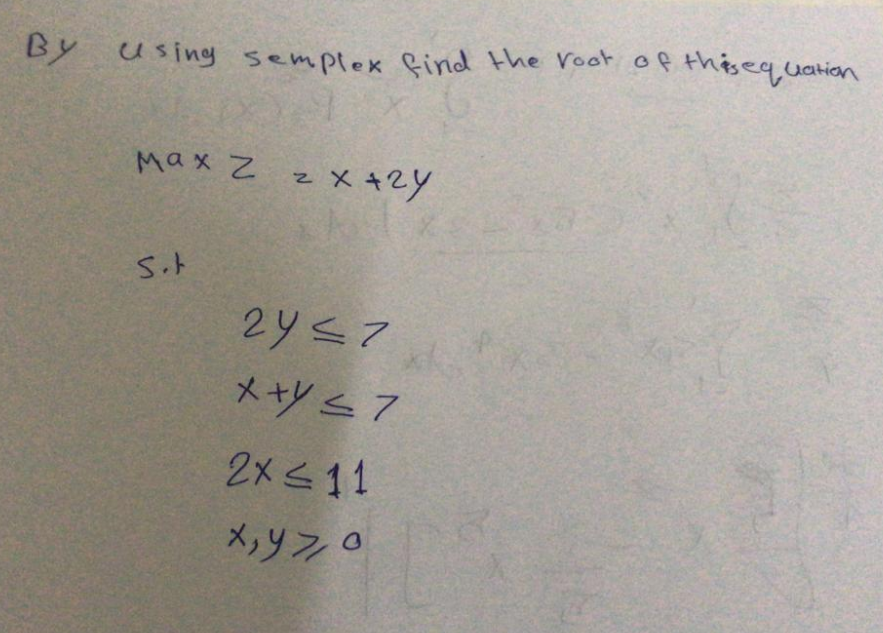 By using semplex find the root of this equation
Max Z = x + 2y
s.t
2y ≤ 7
x + y ≤ 7
2x ≤ 11
x, y ≥ 0